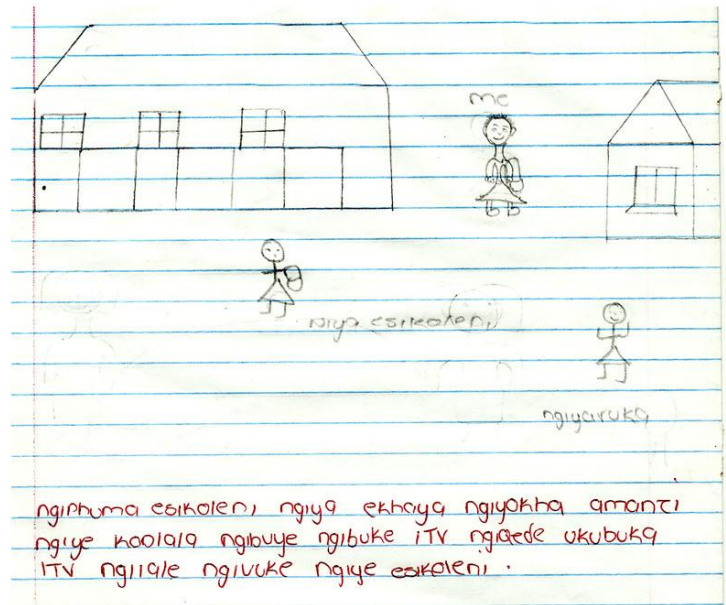 me
niya esikoleni
ngiyavuka
ngiphuma esikoleni ngiya ekhaya ngiyokha amanzi
ngiye koolala ngibuye ngibuke iTV ngiqede ukubuka
iTV ngilale ngivuke ngiye esikoleni.